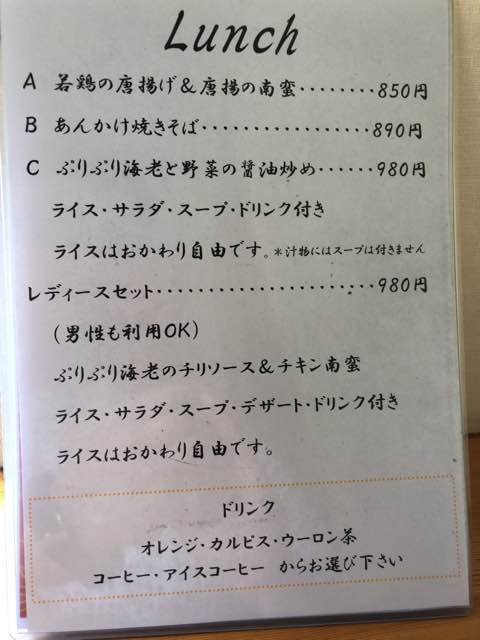 Lunch
A 若鶏の唐揚げ＆唐揚の南蛮········850円
B あんかけ焼きそば·················890円
C ぷりぷり海老と野菜の醤油炒め······980円
ライス・サラダ・スープ・ドリンク付き
ライスはおかわり自由です。＊汁物にはスープは付きません
レディースセット······················980円
(男性も利用OK)
ぷりぷり海老のチリソース＆チキン南蛮
ライス・サラダ・スープ・デザート・ドリンク付き
ライスはおかわり自由です。
ドリンク
オレンジ・カルピス・ウーロン茶
コーヒー・アイスコーヒー からお選び下さい